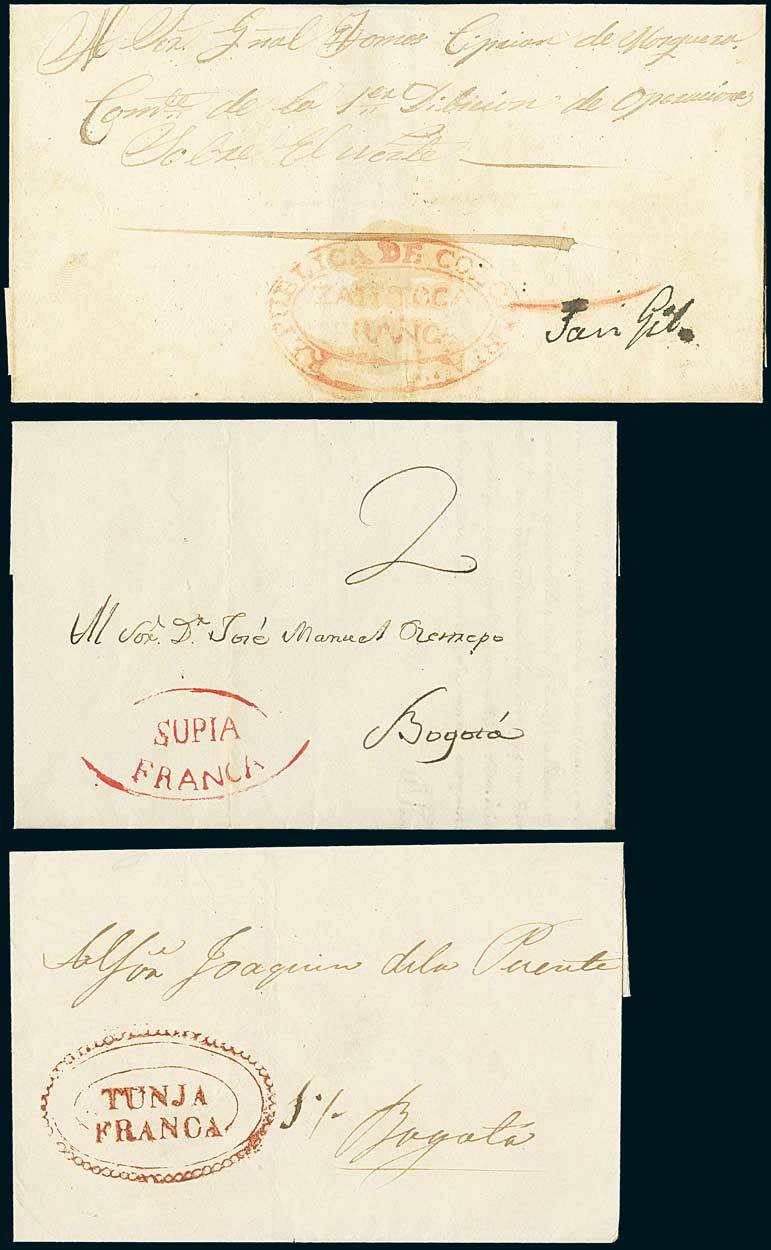 Al Sor. Gñal Tomas Ciprian de Mosquera.
Comte. de la 1era Dibicion de Operaciones
Sobre El Norte
REPUBLICA DE COLOMBIA
ZAPATOCA
FRANCA
San Gil.
2
Al Sor. Dr. José Manuel Restrepo
SUPIA
FRANCA
Bogotá
Al Sor. Joaquin dela Puente
TUNJA
FRANCA
Bogotá